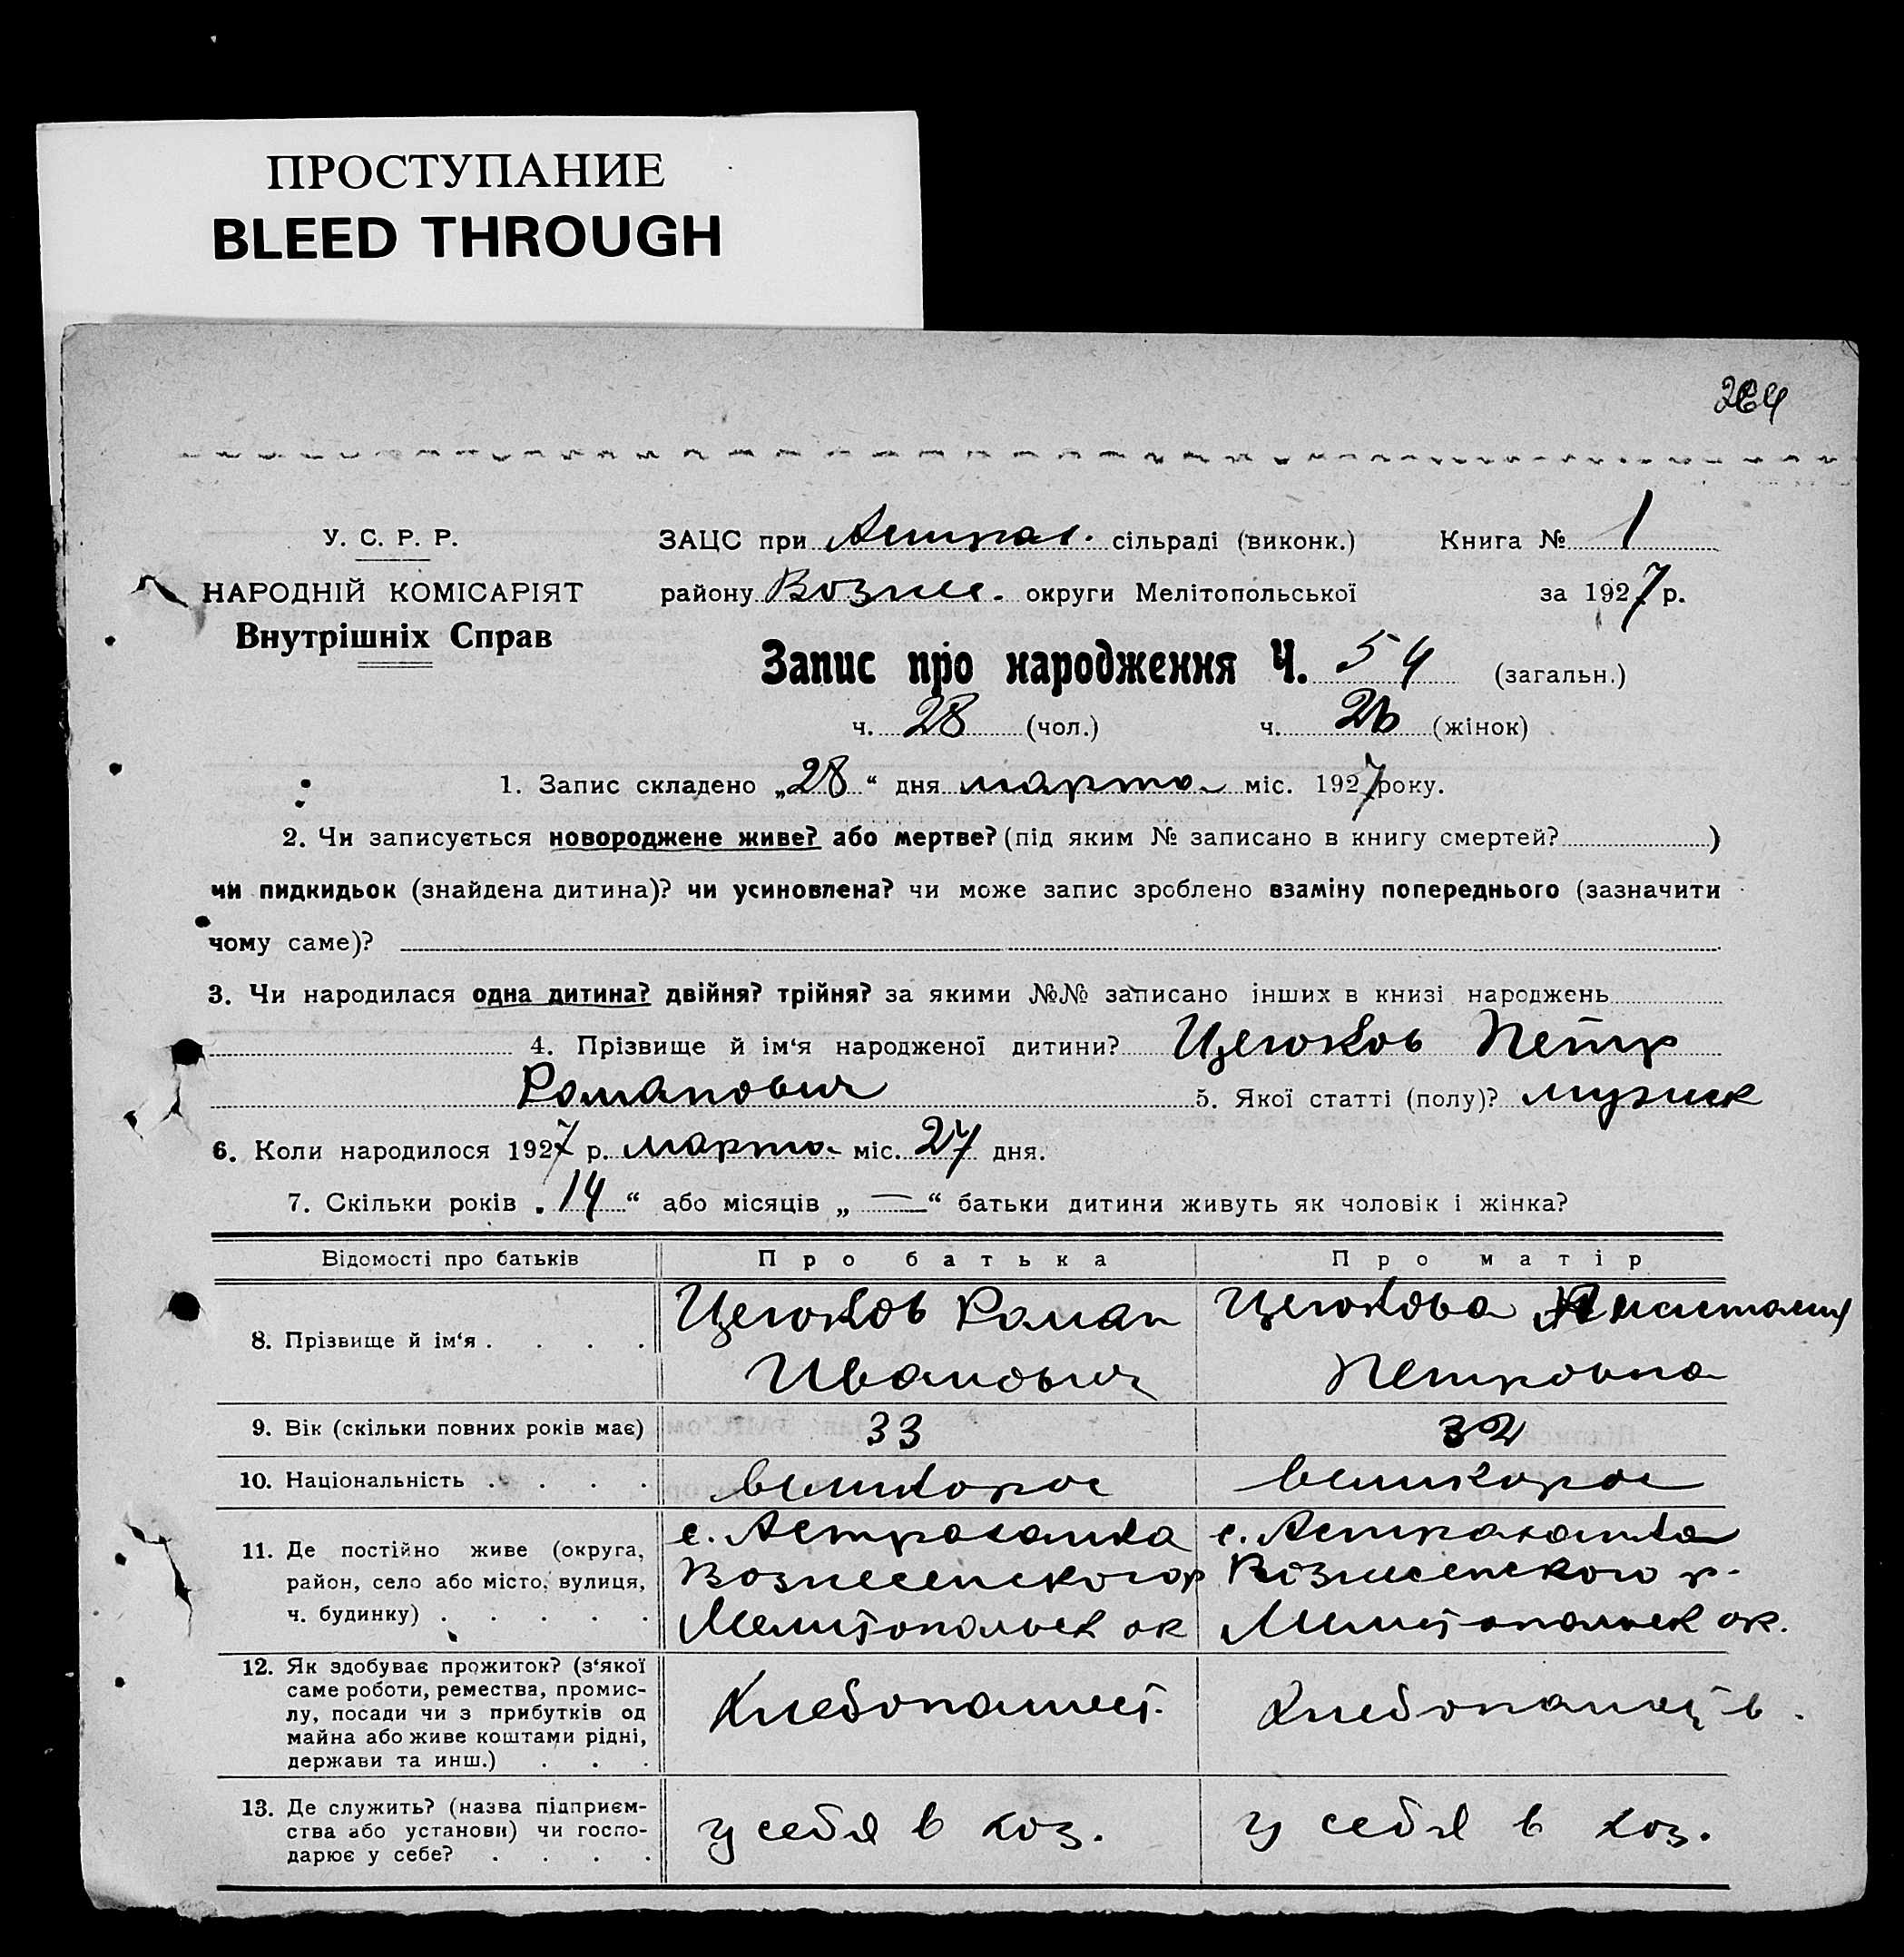 ПРОСТУПАНИЕ
BLEED THROUGH
У. С. Р. Р.
НАРОДНІЙ КОМІСАРІЯТ
Внутрішніх Справ
ЗАЦС при Астрах. сільраді (виконк.) Книга № 1
району Возне. округи Мелітопольської за 1927 р.
Запис про народження Ч. 54 (загальн.)
ч. 28 (чол.) ч. 26 (жінок)
1. Запис складено „28“ дня марта міс. 1927 року.
2. Чи записується новороджене живе? або мертве? (під яким № записано в книгу смертей? )
чи пидкидьок (знайдена дитина)? чи усиновлена? чи може запис зроблено взаміну попереднього (зазначити
чому саме)?
3. Чи народилася одна дитина? двійня? трійня? за якими №№ записано інших в книзі народжень
4. Прізвище й ім‘я народженої дитини? Петр
Романович 5. Якої статті (полу)? мужск
6. Коли народилося 1927 р. марта міс. 27 дня.
7. Скільки років „14“ або місяців „—“ батьки дитини живуть як чоловік і жінка?
Відомості про батьків Про батька Про матір
8. Прізвище й ім‘я . . . . Роман Иванович Анастасия Петровна
9. Вік (скільки повних років має) 33 32
10. Національність . . . . великорос великорос
11. Де постійно живе (округа, с. Астраханка с. Астраханка
район, село або місто, вулиця, Вознесенского р Вознесенского р.
ч. будинку) . . . . . Мелитопольск ок Мелитопольск ок.
12. Як здобуває прожиток? (з‘якої
саме роботи, ремества, промис-
лу, посади чи з прибутків од Хлебопашест. Хлебопашеств.
майна або живе коштами рідні,
держави та инш.) . . .
13. Де служить? (назва підприєм-
ства або установи) чи госпо- у себя в хоз. у себя в хоз.
дарює у себе? . . . .